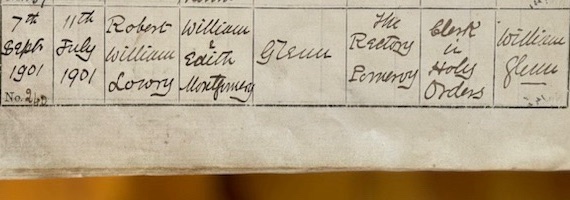 7th
Septr
1901
No. 240
11th
July
1901
Robert
William
Lowry
William
&
Edith
Montgomery
Glenn
The
Rectory
Pomeroy
Clerk
in
Holy
Orders
William
Glenn